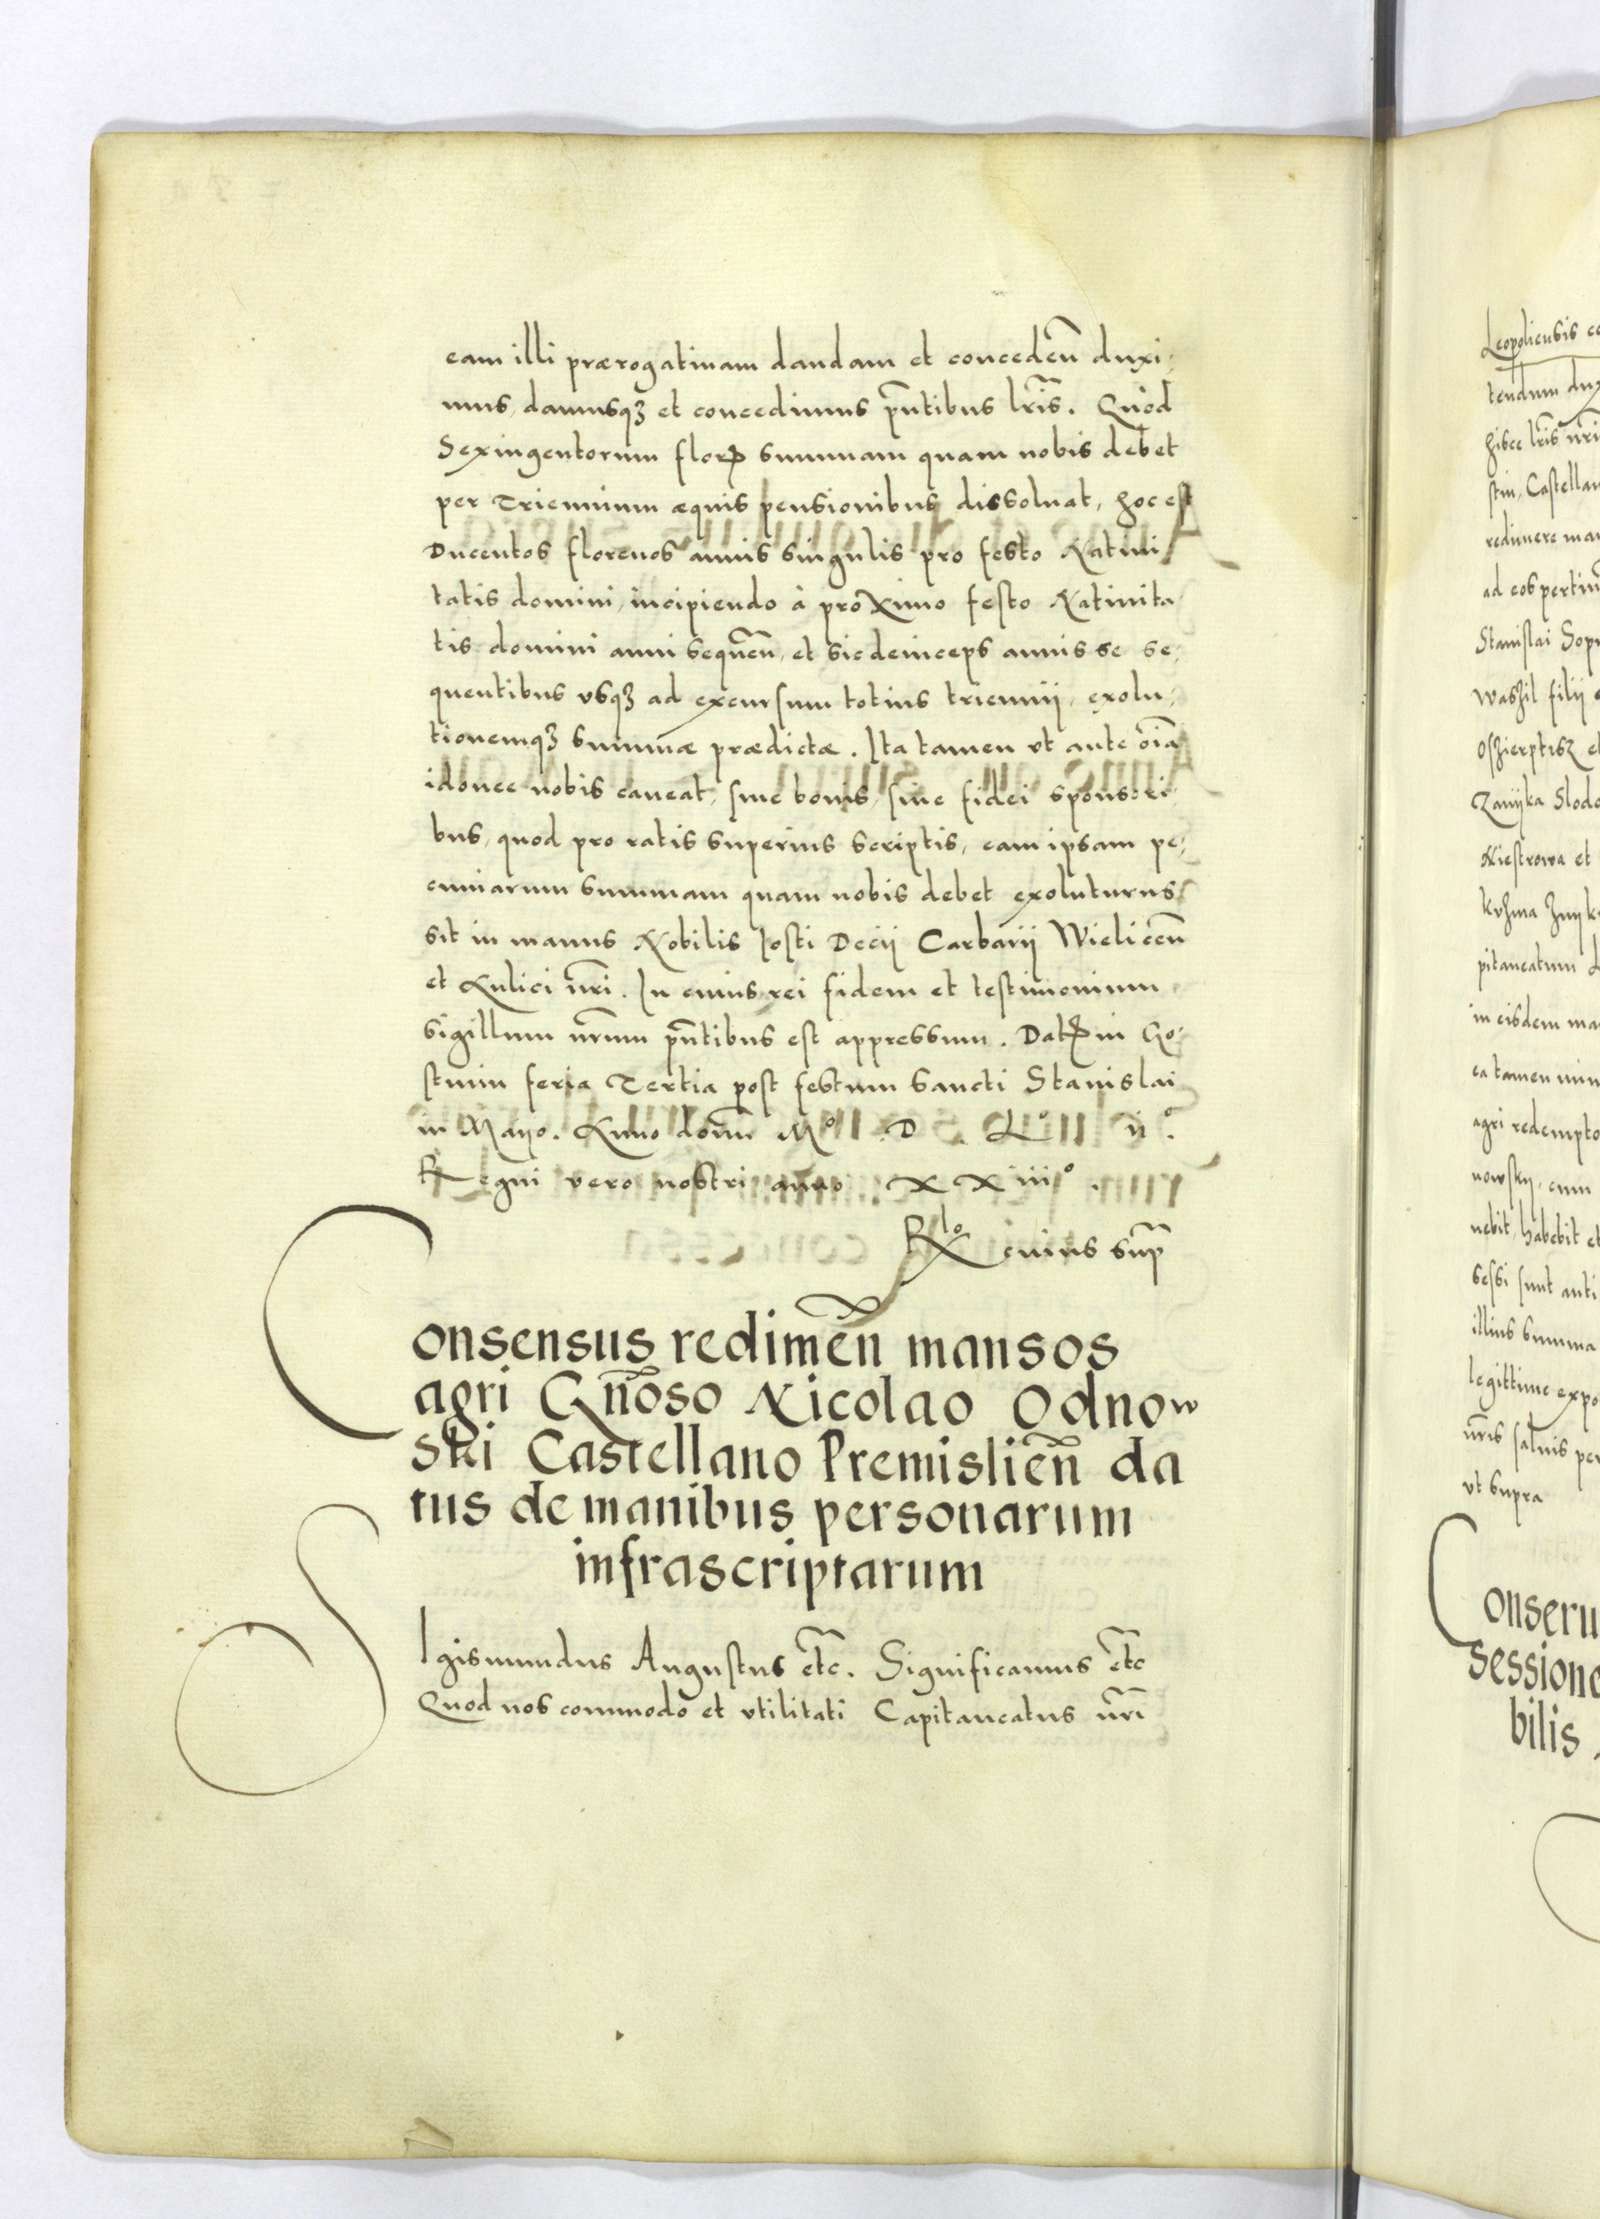 eam illi prærogatiuam dandam et conceden̄ duxi,
mus, damusqꝫ et concedimus pn̄tibus lrīs. Quod
Sexingentorum florꝝ summam quam nobis debet
per Triennium æquis pensionibus dissoluat, hoc est
Ducentos florenos annis singulis pro festo Natiui
tatis domini, incipiendo à proximo festo Natiuita
tis domini anni sequen̄, et sic deinceps annis se se,
quentibus vsqꝫ ad excursum totius triennij, exolu,
tionemqꝫ summæ prædictæ. Ita tamen vt ante oīa
idonee nobis caueat, siue bonis, siue fidei sponsori,
bus, quod pro ratis superius scriptis, eam ipsam pe,
cuniarum summam quam nobis debet exoluturus
sit in manus Nobilis Iosti Decij Carbarij Wielicen̄
et Aulici nr̄i. In cuius rei fidem et testimonium
sigillum nr̄um pn̄tibus est appressum. Datꝝ in Go,
stinin feria Tertia post festum Sancti Stanislai
in Mayo. Anno domn̄ Mº. D. Lº. ijº.
Regni vero nostri anno. XXiiiº.
Rlo cuius sup̄
Consensus redimen̄ mansos
agri Gn̄oso Nicolao Odnow
ski Castellano Premislien̄ da
tus de manibus personarum
infrascriptarum
SIgismundus Augustus etc̄. Significamus etc̄
Quod nos commodo et vtilitati Capitaneatus nr̄i
Leopoliensis
hisce lrīs
stin, Castellan
redimere
ad eos pertin
Stanislai
Waszil filij
Niestrowa et
pitaneatum
in eisdem
ea tamen
agri redempto
nowskij, cum
nebit, habebit et
sessi sunt anti
illius summa
legittime expo
nr̄is saluis per
vt supra
Conseru
sessione
bilis